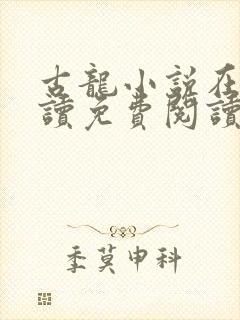 古龍小説在
讀免費閱讀
季莫申科